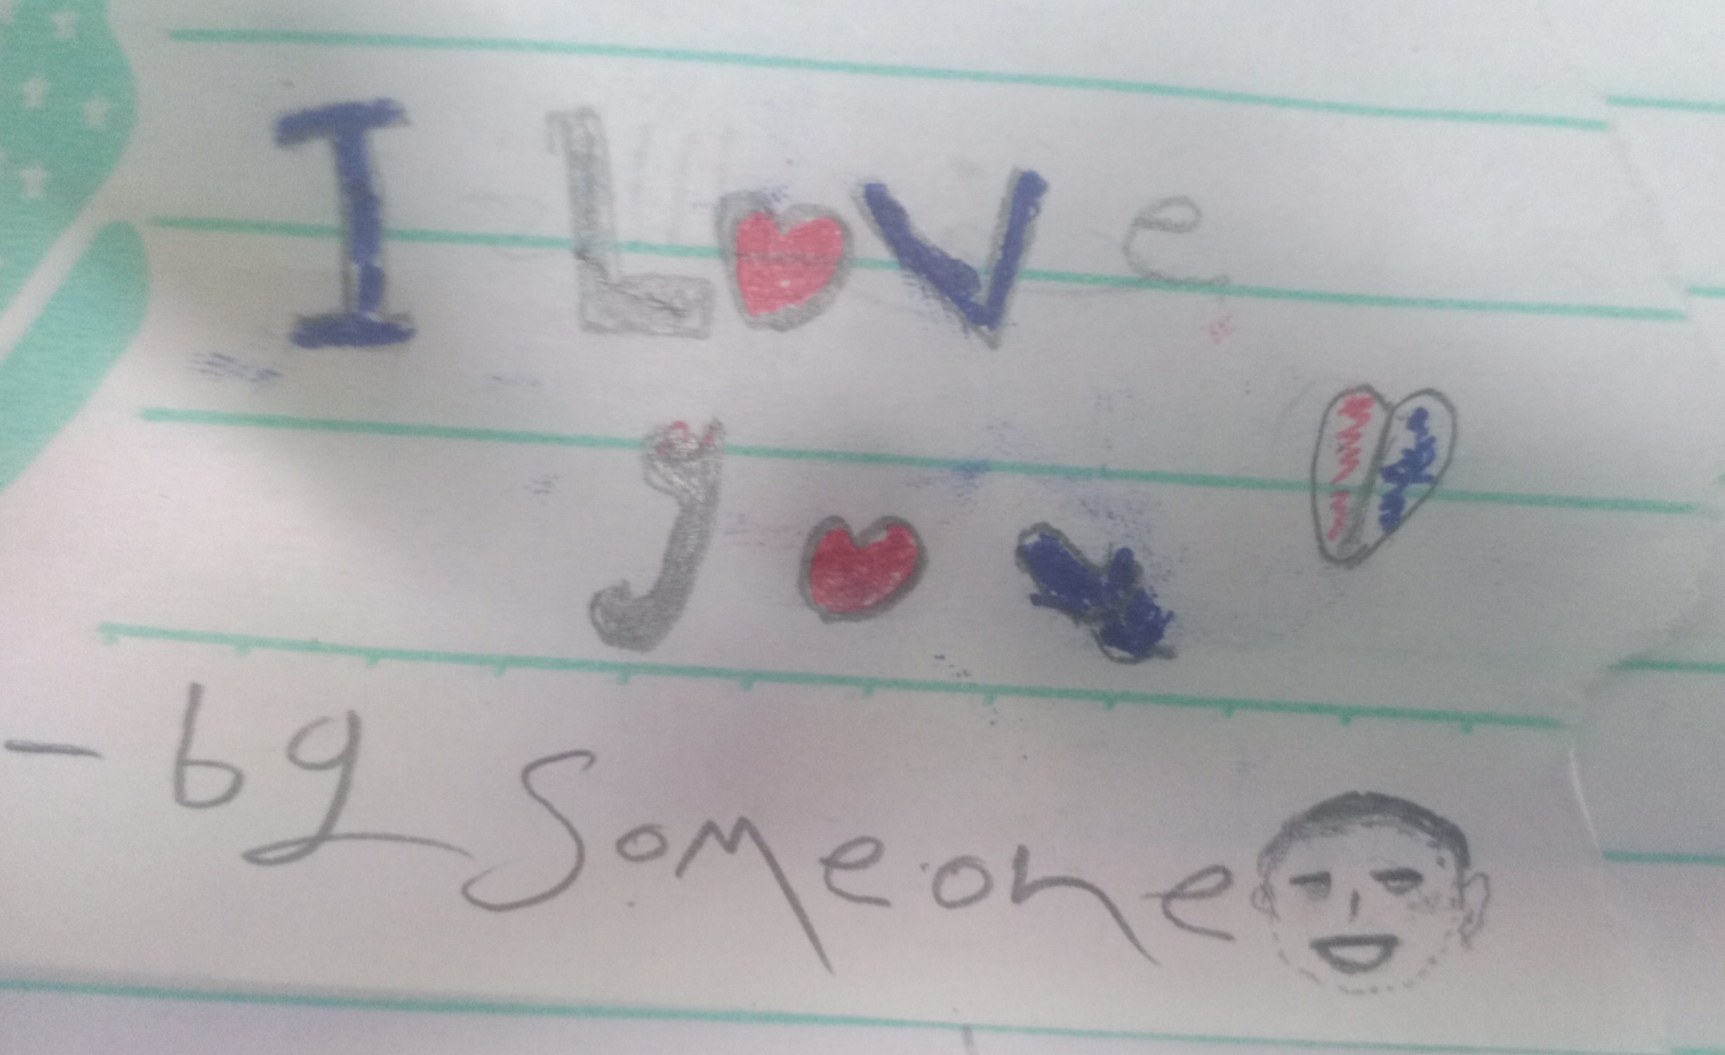 I Love
you
- by Someone